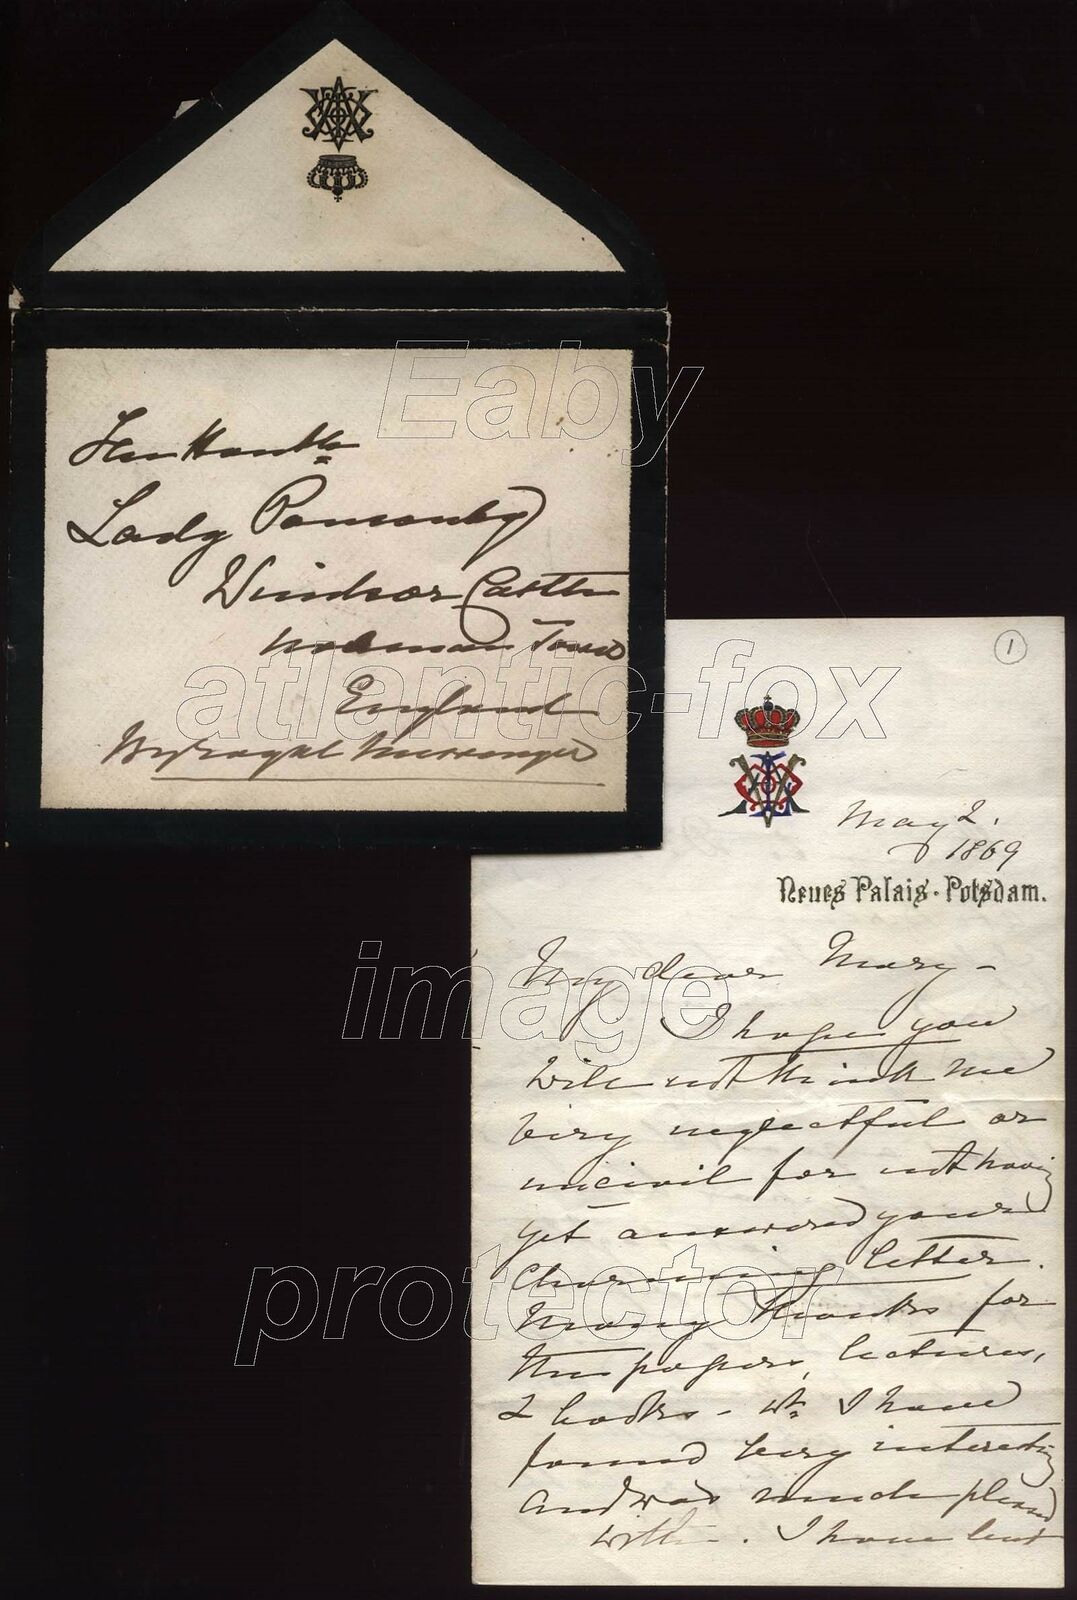 The Hon^ble
Lady Ponsonby
Windsor Castle
Norman Tower
England
By Royal Messenger
1
May 2.
1869
Neues Palais · Potsdam.
My dear Mary –
I hope you
will not think me
very neglectful or
uncivil for not having
yet answered your
charming letter.
Many thanks for
the papers, lectures,
& books – wh I have
found very interesting
and was much pleased
with –. I have lent
Eaby
atlantic-fox
image
protector